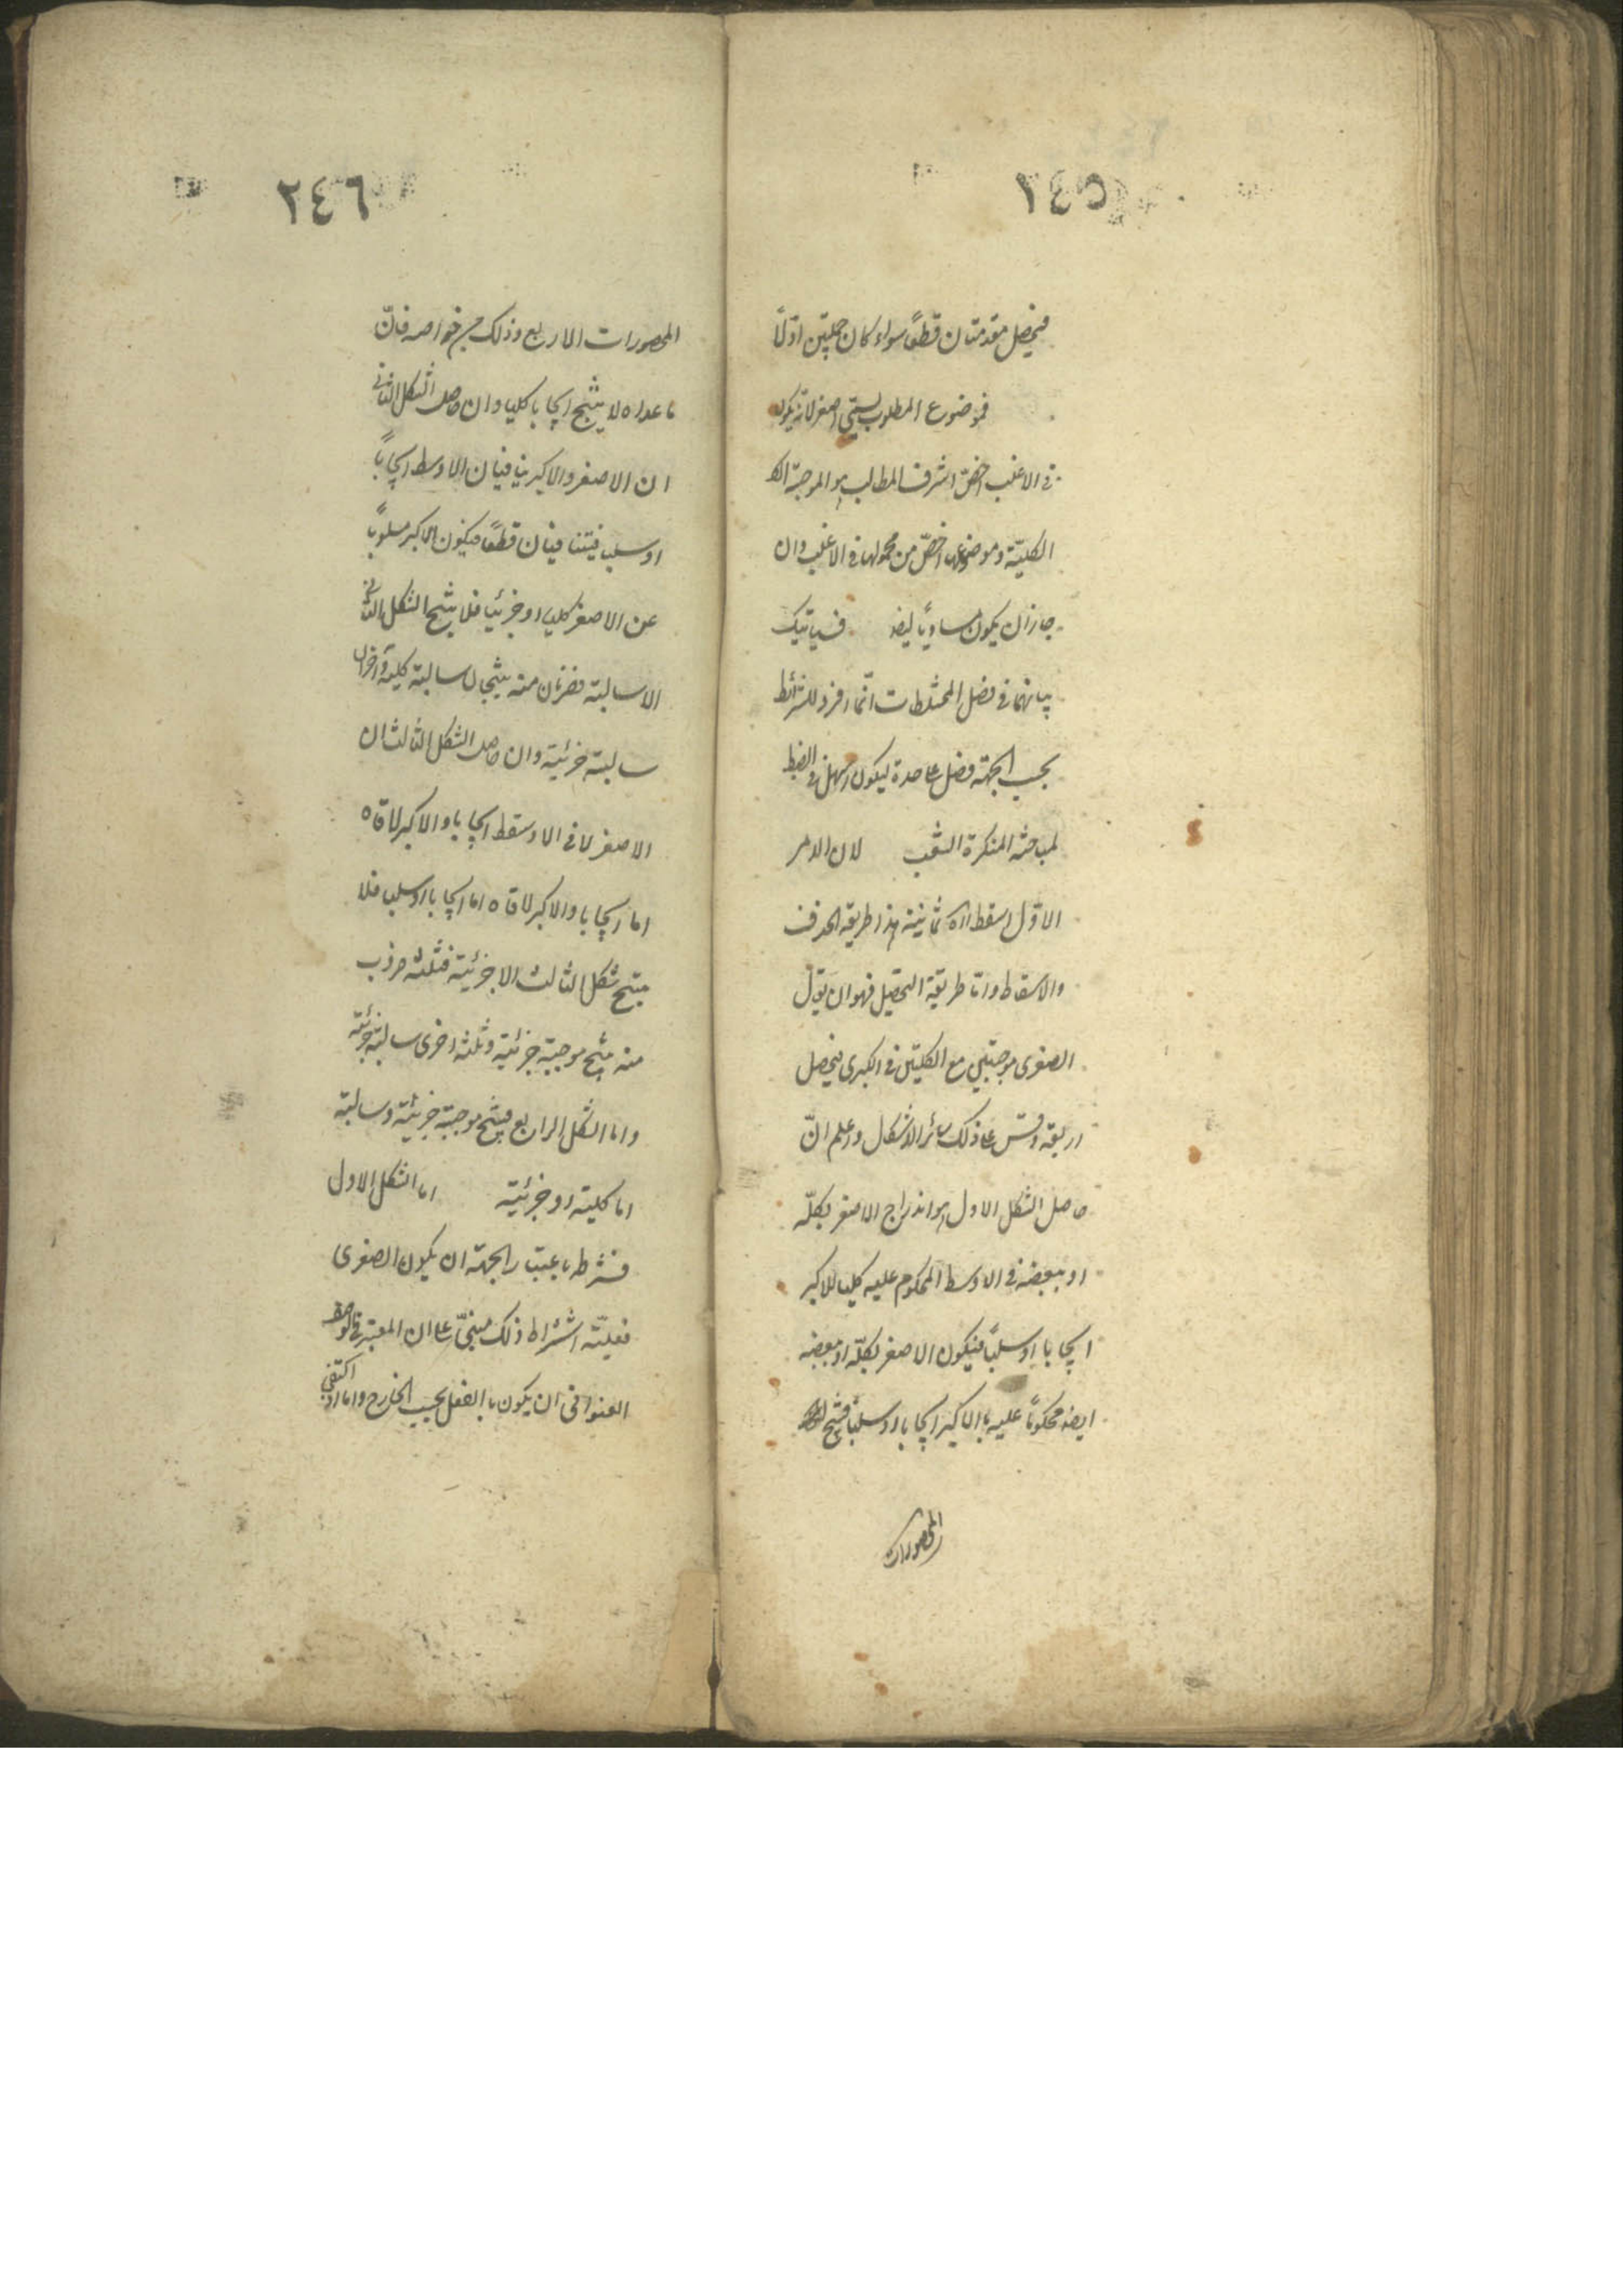 ٢٤٥
فيحصل مقدمتان قطعًا سواء كان حمليتين اولًا
فموضوع المطلوب يسمى اصغر لانه يكون
في الاغلب اخصّ اشرف المطالب هو الموجبة
الكليّة وموضوعها اخصّ من محمولها في الاغلب وان
جاز ان يكون مساويًا ايضا فسياتيك
بيانهما في فصل المختلطات انّما افرد للشرائط
بحسب الجهة فصل عاحدة ليكون اسهل في الضبط
لمباحثه المنكرة الشعب لان الامر
الاوّل اسقط اه ثمانية هذا طريقة الحذف
والاسقاط واما طريقة التحصيل فهو ان يقول
الصغرى موجبتين مع الكليتين في الكبرى فيحصل
اربعة وقس عا ذلك سائر الاشكال واعلم انّ
حاصل الشكل الاول هو اندراج الاصغر بكلّه
او ببعضه في الاوسط المحكوم عليه كليا للاكبر
ايجابا او سلبًا فيكون الاصغر بكلّه او ببعضه
ايضا محكومًا عليه بالاكبر ايجابا او سلبًا فينتج
المحصورات
٢٤٦
المحصورات الاربع وذلك من خواصه فانّ
ما عداه لا ينتج ايجابا كليا وان حاصل الشكل الثانى
ان الاصغر والاكبر ينافيان الاوسط ايجابًا
او سلبا فيتنافيان قطعًا فيكون الاكبر مسلوبًا
عن الاصغر كليا او جزئيا فلا ينتج الشكل الثانى
الا سالبة فضربان منه ينتجان سالبة كلية وآخران
سالبة جزئية وان حاصل الشكل الثالث ان
الاصغر لاقى الاوسط ايجابا والاكبر لاقاه
اما ايجابا والاكبر لاقاه اما ايجابا او سلبا فلا
ينتج شكل الثالث الا جزئية فثلثة ضروب
منه ينتج موجبة جزئية وثلثة اخرى سالبة جزئية
واما الشكل الرابع فينتج موجبة جزئية وسالبة
اما كلية او جزئية اما الشكل الاول
فشرطه باعتبار الجهة ان يكون الصغرى
فعليّته اشتراط ذلك مبنىّ عا ان المعتبر في الوصف
العنوانى ان يكون بالفعل بحسب الخارج واما اذا اكتفى